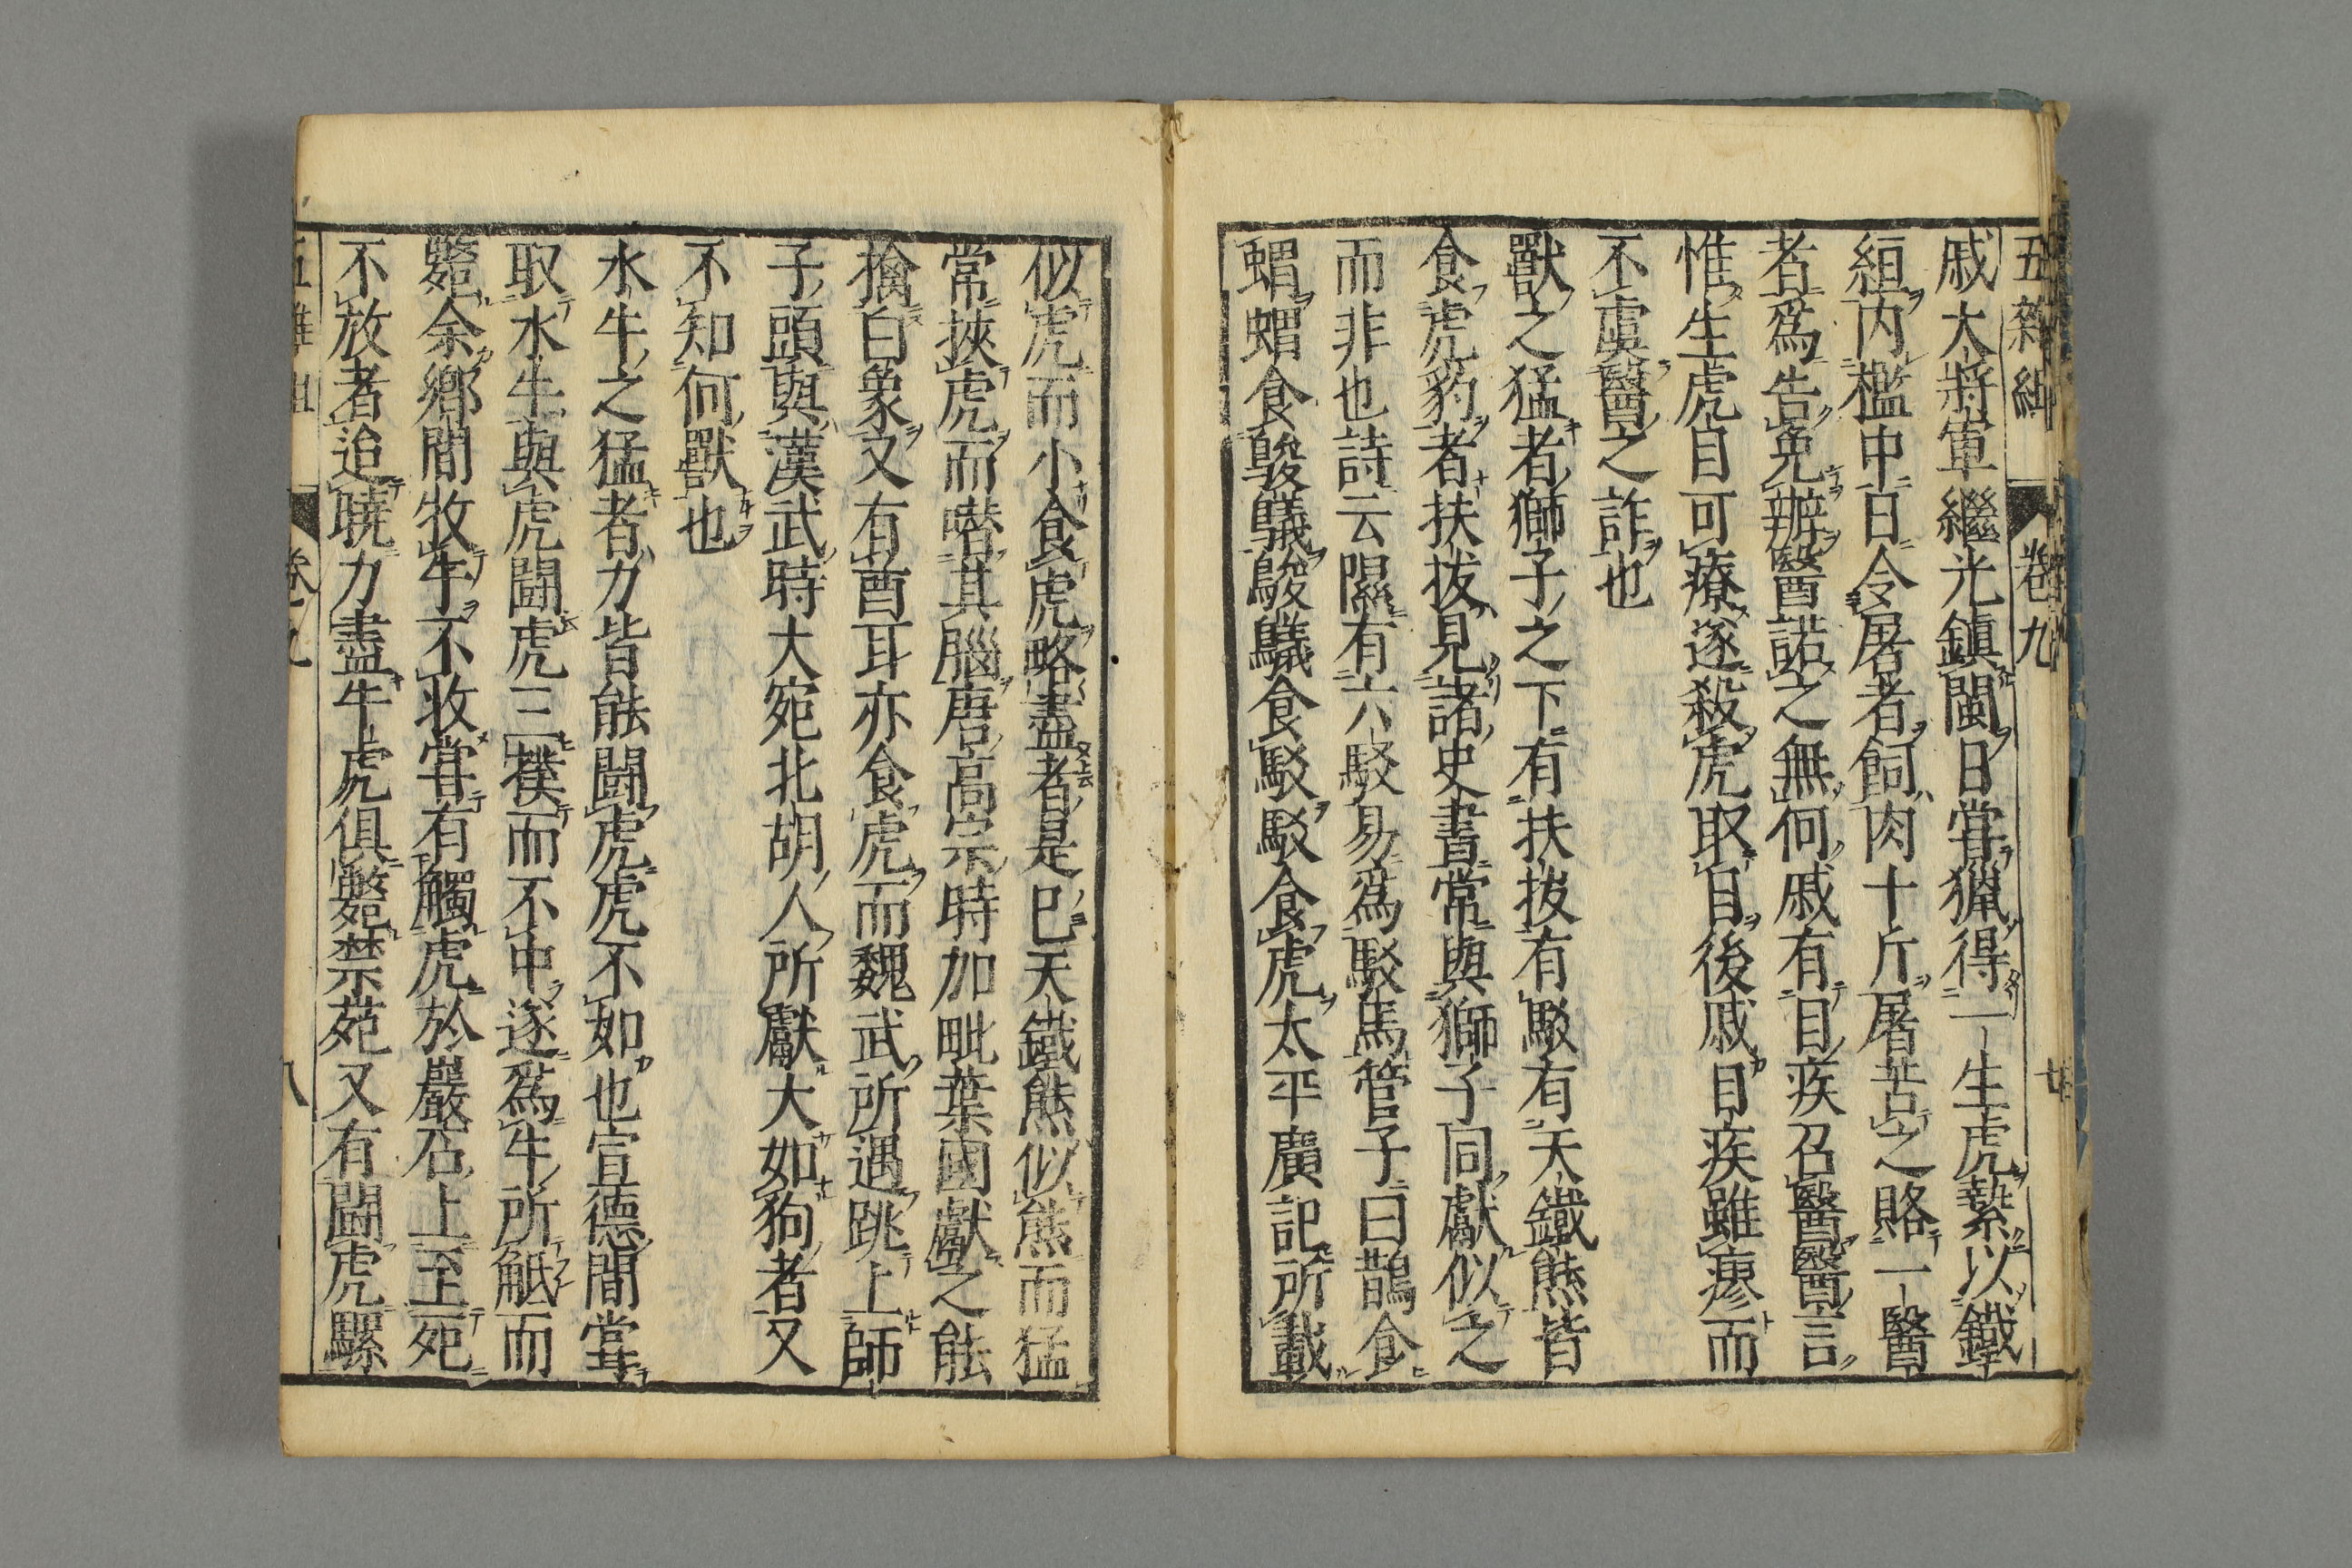 五雜組 卷九
戚大將軍繼光鎮閩日甞獵得一生虎縶以鐵
絙内檻中日令屠者飼肉十斤屠苦之賂一醫
者爲告免辦醫諾之無何戚有目疾召醫醫言
惟生虎目可療遂殺虎取目後戚目疾雖瘳而
不虞醫之詐也
獸之猛者獅子之下有扶拔有駮有天鐵熊皆
食虎豹者扶拔見諸史書常與獅子同獻似之
而非也詩云隰有六駮易爲駮馬管子曰鵲食
蝟蝟食鵔鸃鵔鸃食駮駮食虎太平廣記所載
似虎而小食虎略盡者是巳天鐵熊似熊而猛
常挾虎而噆其腦唐高宗時加毗葉國獻之能
擒白象又有酋耳亦食虎而魏武所遇跳上師
子頭與漢武時大宛北胡人所獻大如狗者又
不知何獸也
水牛之猛者力皆能鬪虎虎不如也宣德間甞
取水牛與虎鬪虎三撲而不中遂爲牛所觝而
斃余鄉間牧牛不收甞有觸虎於巖石上至死
不放者追曉力盡牛虎俱斃禁苑又有鬪虎騾
五雜組 卷之九 八